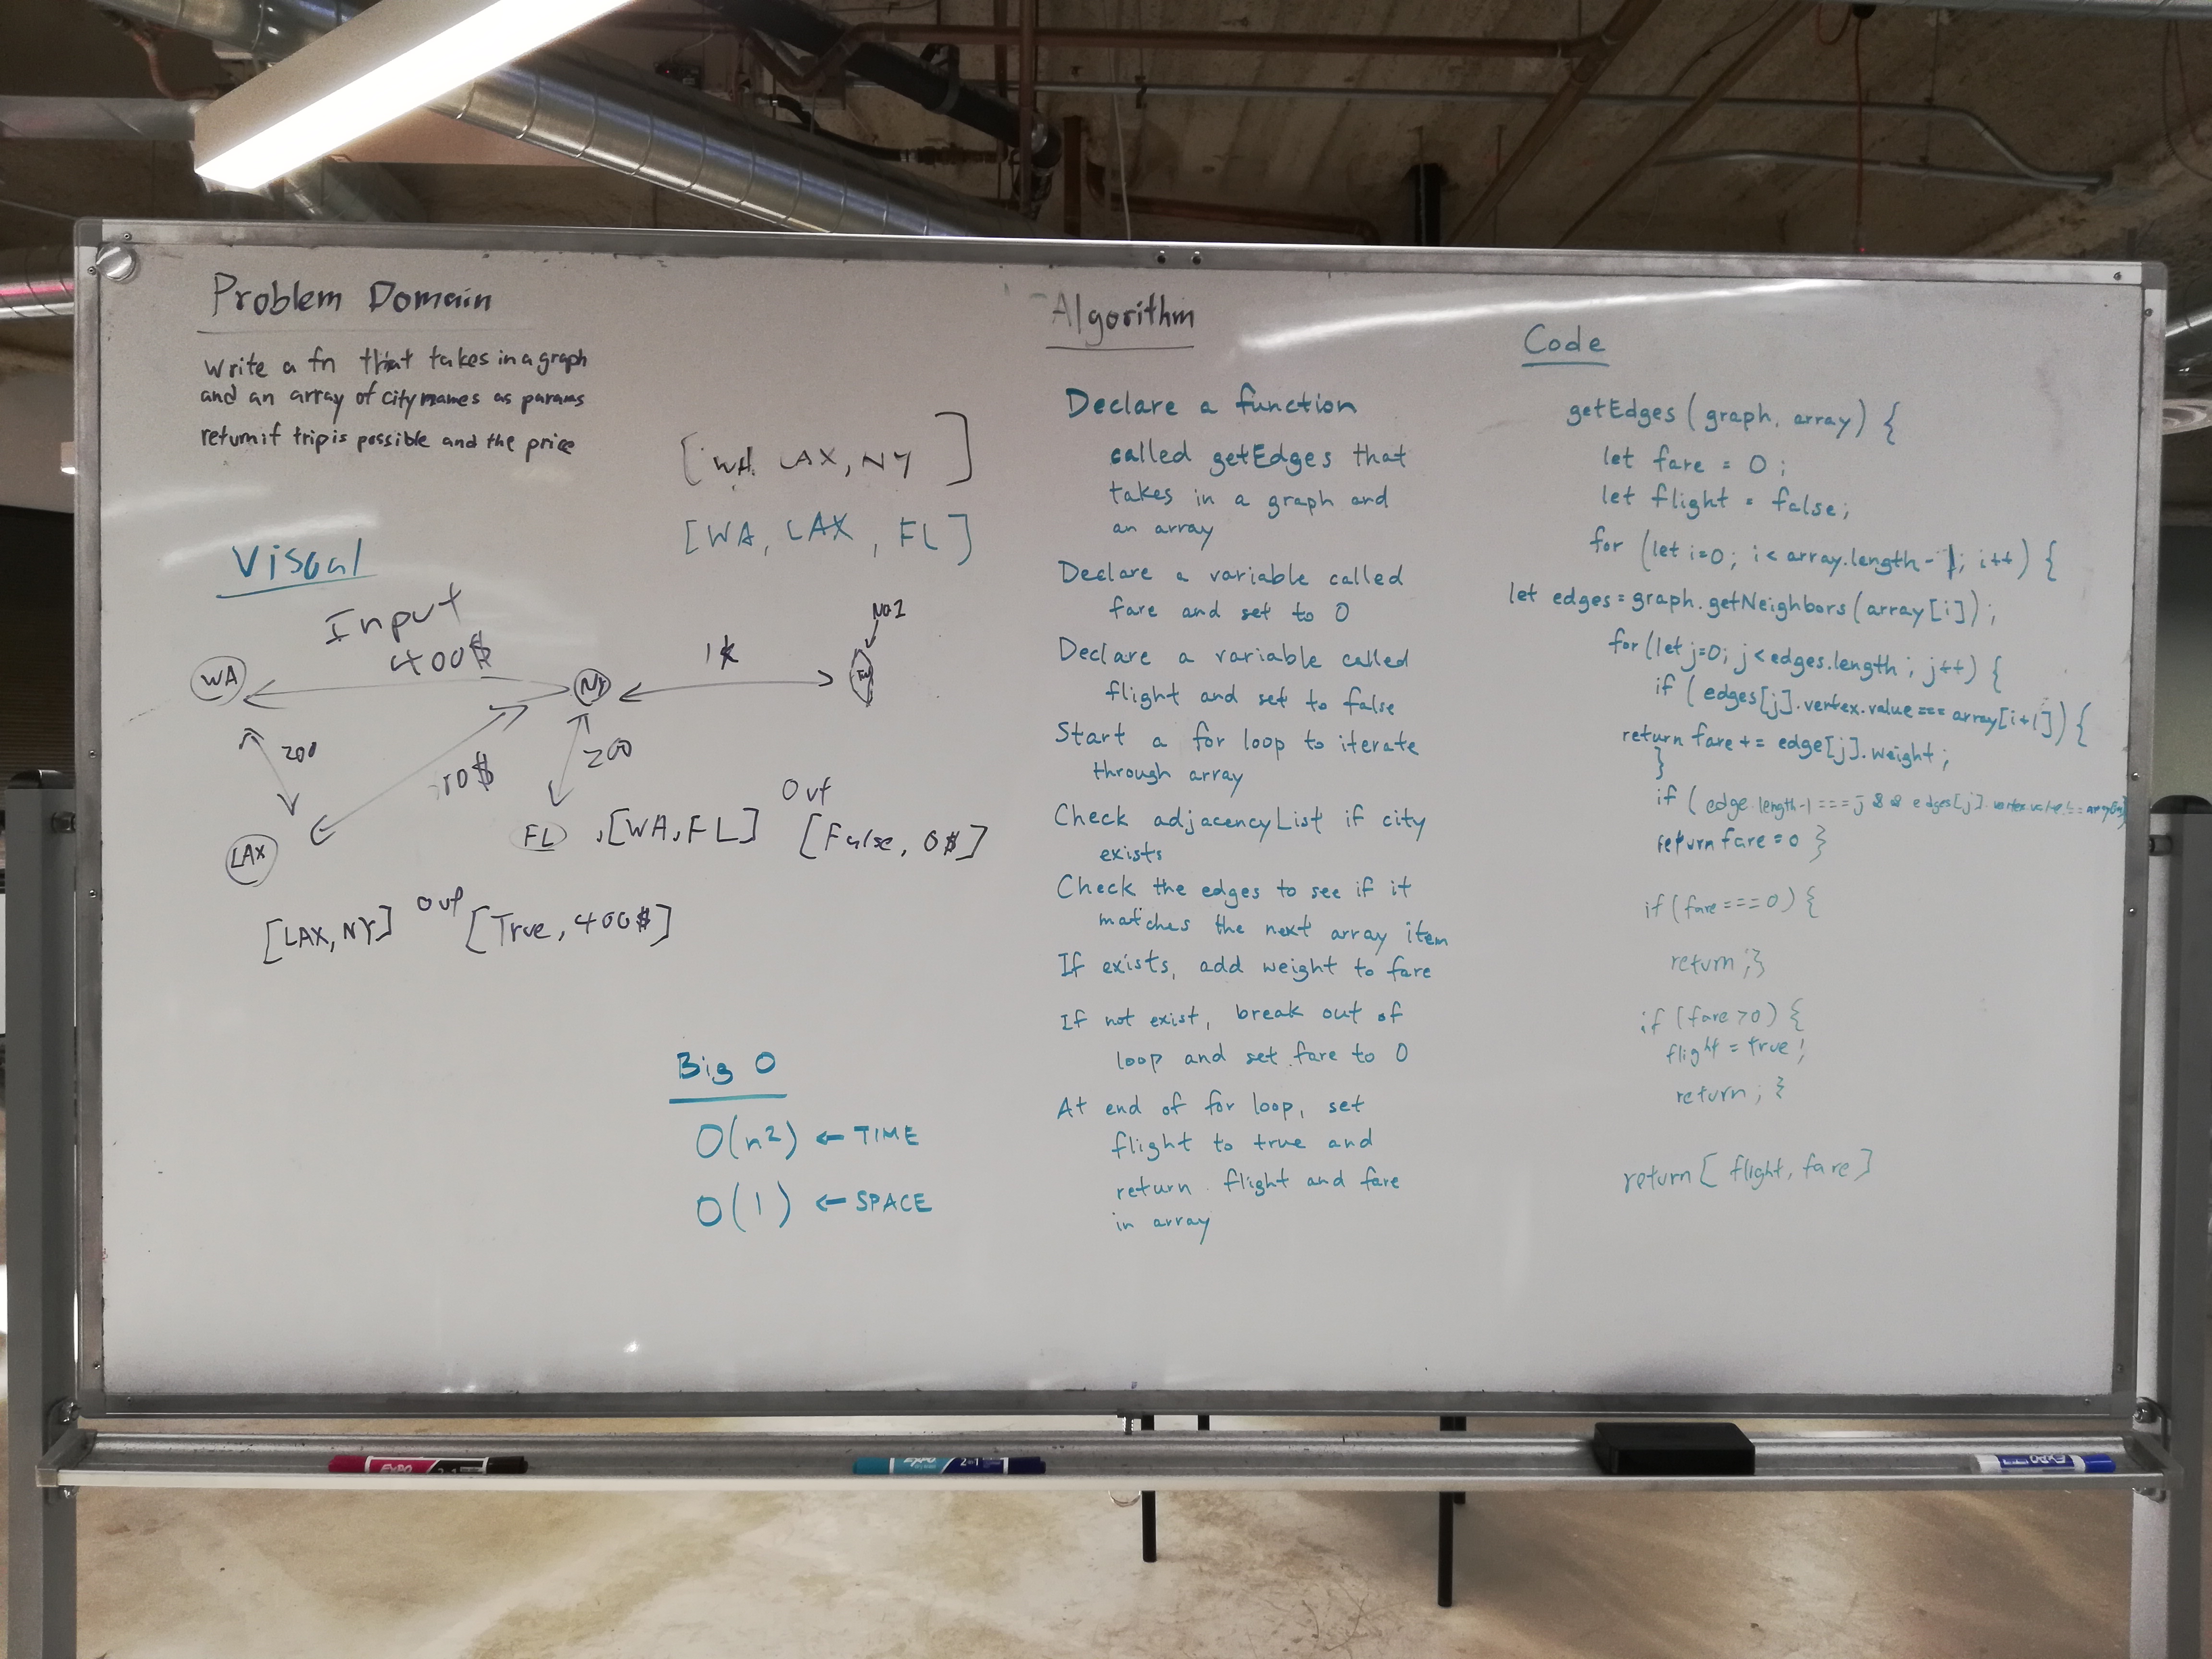 Problem Domain
Write a fn that takes in a graph
and an array of city names as params
return if trip is possible and the price
[WA, LAX, NY]
[WA, LAX, FL]
Visual
Input
400$
WA
NY
1k
200
200
LAX
FL
,[WA,FL]
Out
[False, 0$]
[LAX,NY]
out
[True, 400$]
Big O
O(n2) ← TIME
O(1) ← SPACE
Algorithm
Declare a function
called getEdges that
takes in a graph and
an array
Declare a variable called
fare and set to 0
Declare a variable called
flight and set to false
Start a for loop to iterate
through array
Check adjacencyList if city
exists
Check the edges to see if it
matches the next array item
If exists, add weight to fare
If not exist, break out of
loop and set fare to 0
At end of for loop, set
flight to true and
return flight and fare
in array
Code
getEdges (graph, array) {
let fare = 0;
let flight = false;
for (let i=0; i< array.length-1; i++) {
let edges = graph.getNeighbors(array[i]);
for(let j=0; j<edges.length; j++) {
if (edges[j].vertex.value === array[i+1]) {
return fare += edge[j].weight;
}
if (edge.length-1 === j && edges[j].vertex.value !==
return fare = 0 }
if (fare === 0) {
return ;}
if (fare > 0) {
flight = true;
return ; }
return [ flight, fare ]
EXPO
EXPO
2-in-1
EXPO